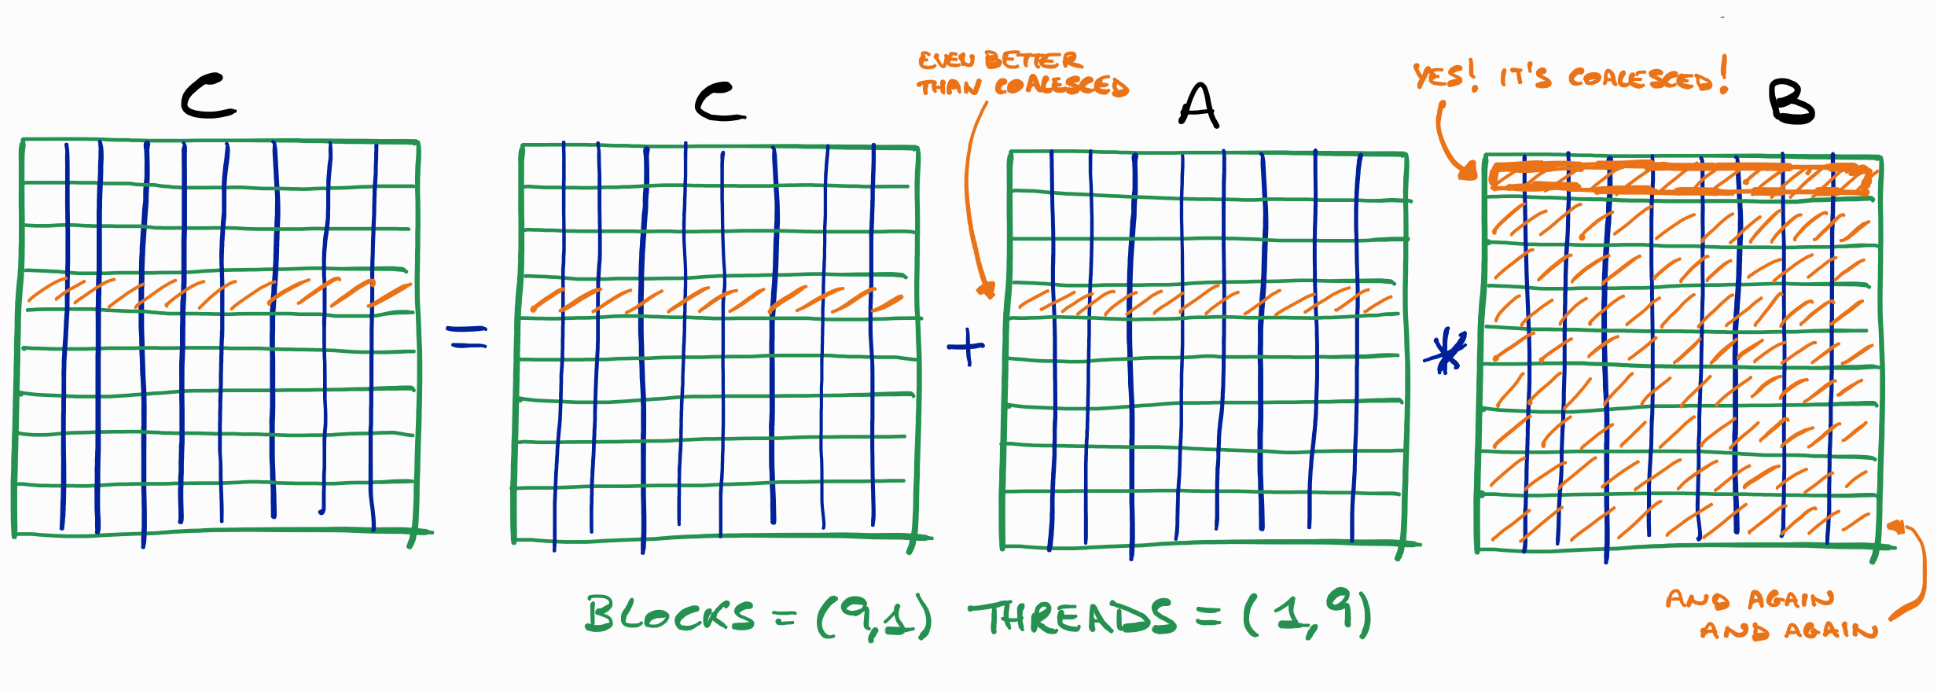 EVEN BETTER
THAN COALESCED
YES! IT'S COALESCED!
C
C
A
B
=
+
*
AND AGAIN
AND AGAIN
BLOCKS = (9,1) THREADS = (1,9)